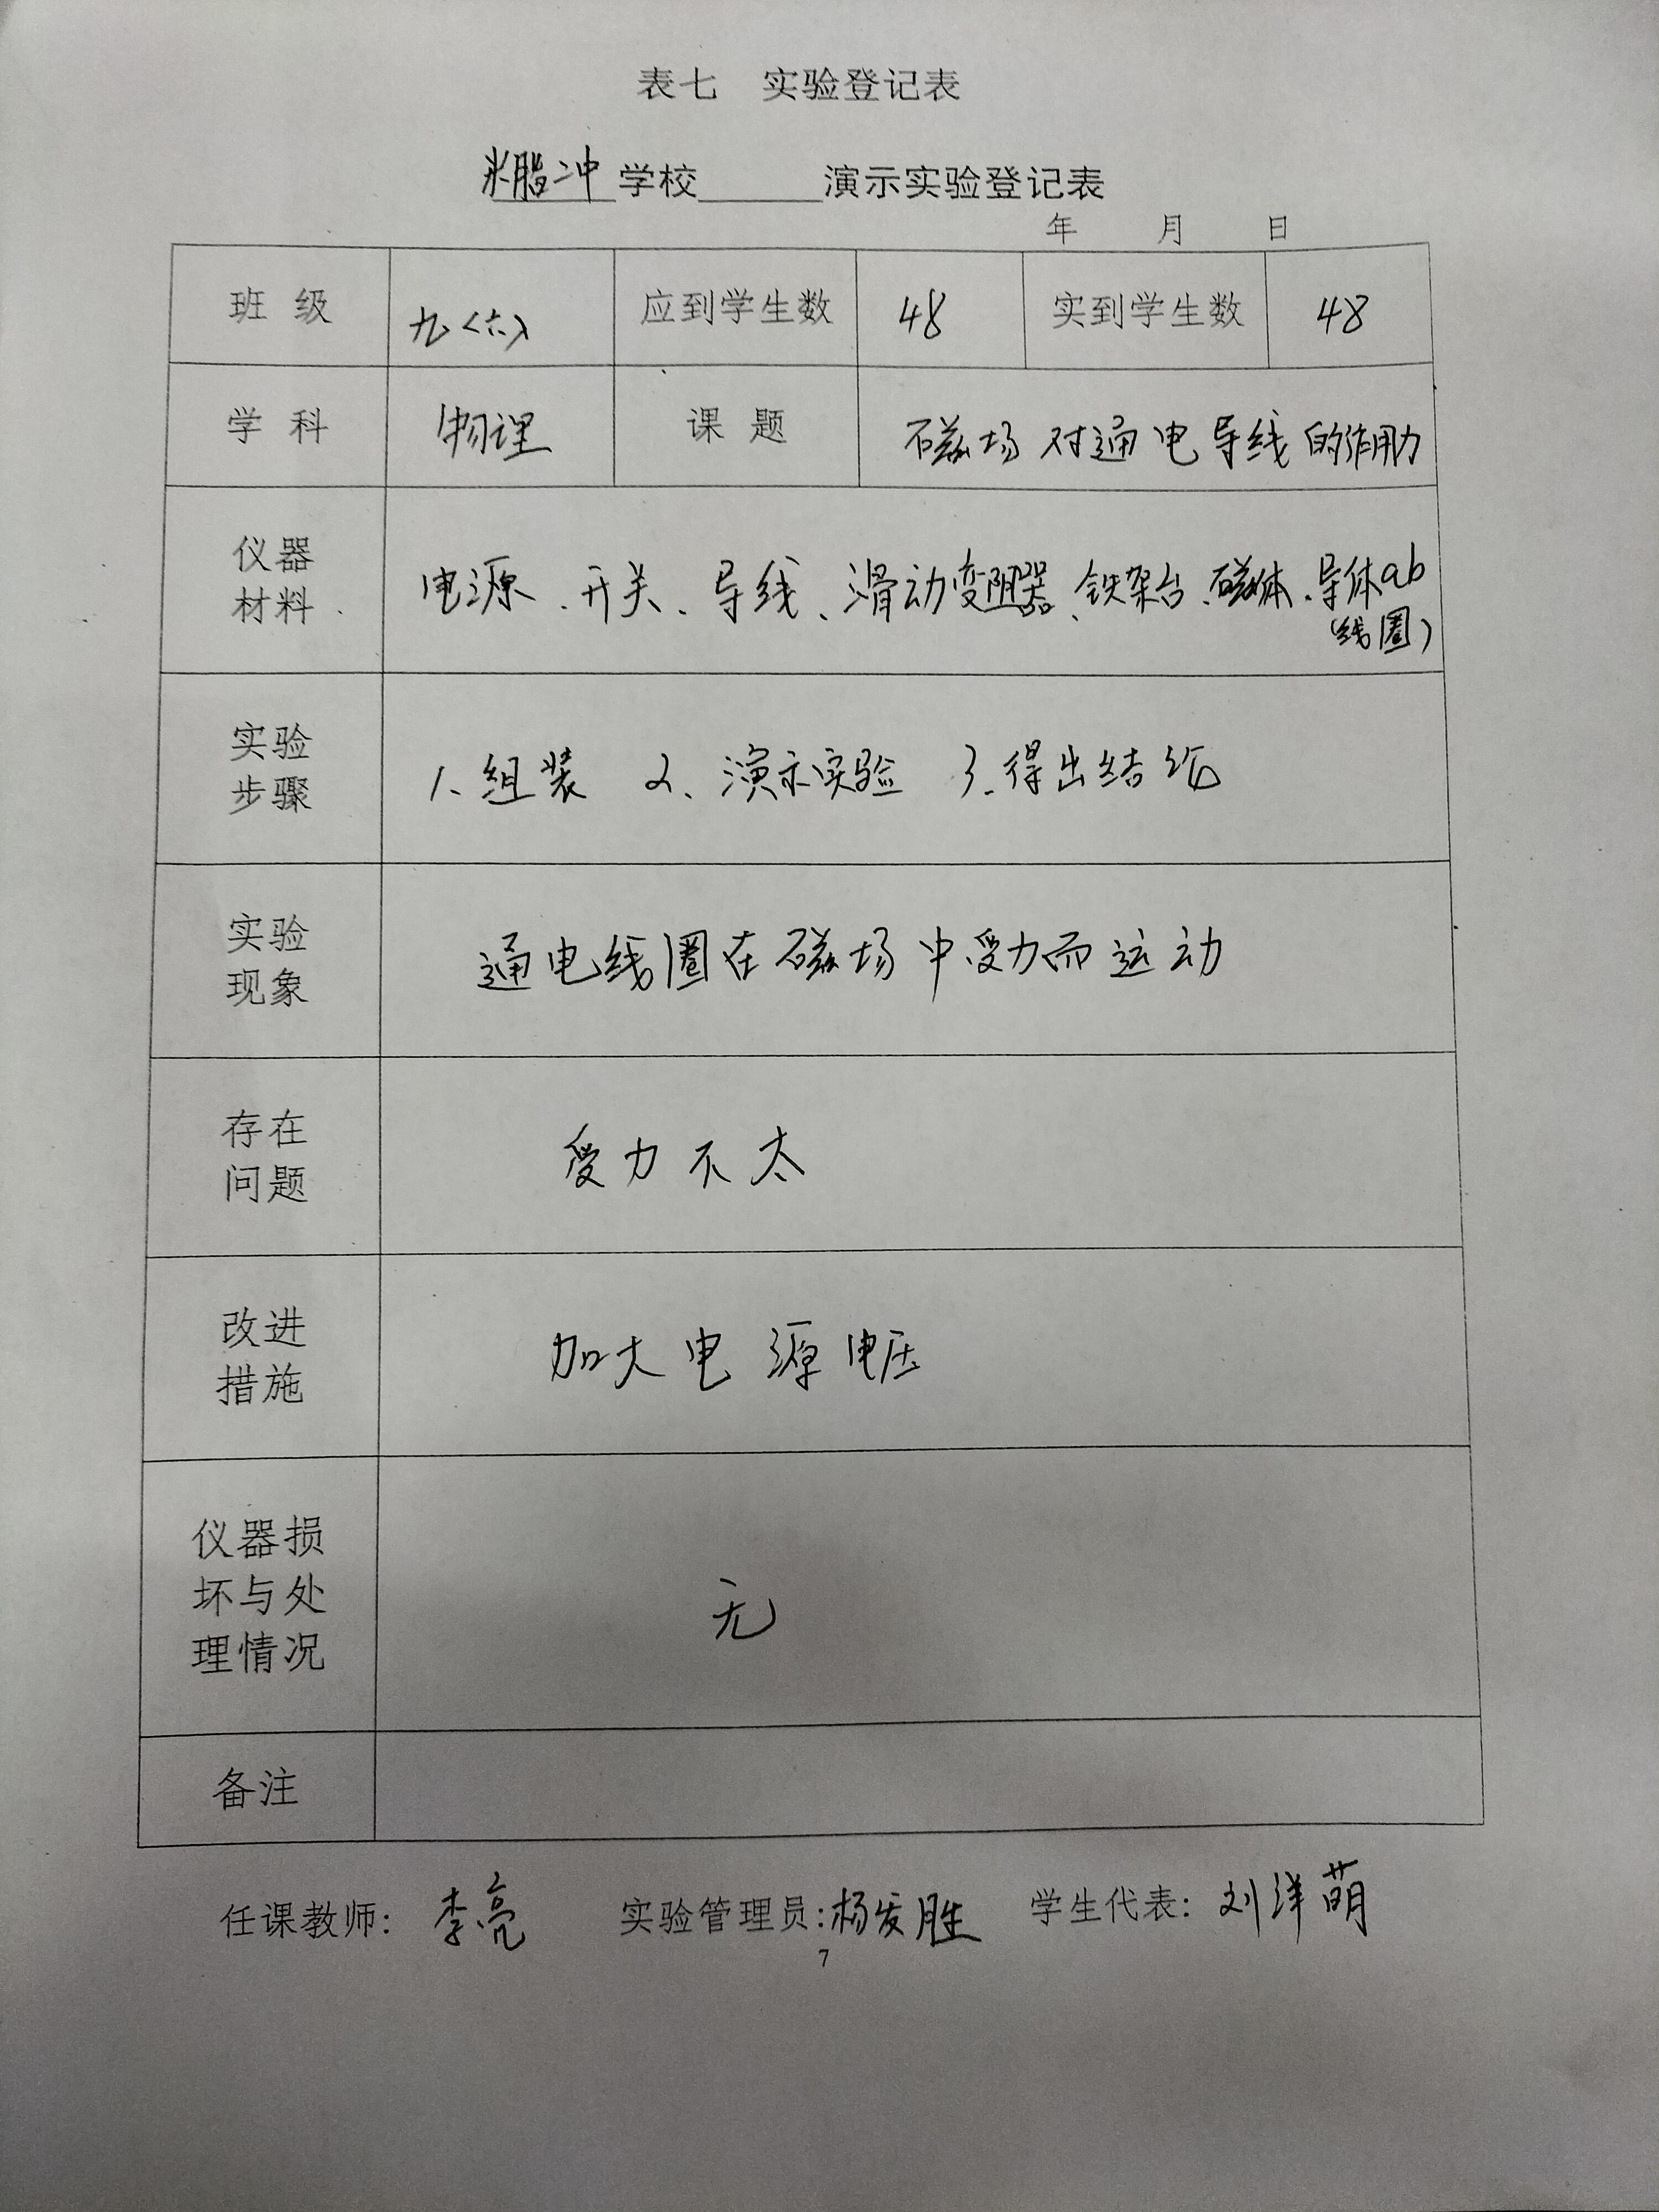 表七 实验登记表
米脂冲学校______演示实验登记表
年 月 日
班 级 九<六> 应到学生数 48 实到学生数 48
学 科 物理 课 题 磁场对通电导线的作用力
仪器
材料
电源、开关、导线、滑动变阻器、铁架台、磁体、导体ab
(线圈)
实验
步骤
1、组装 2、演示实验 3、得出结论
实验
现象
通电线圈在磁场中受力而运动
存在
问题
受力不太
改进
措施
加大电源电压
仪器损
坏与处
理情况
无
备注
任课教师: 李亮 实验管理员:杨发胜 学生代表: 刘洋萌
7